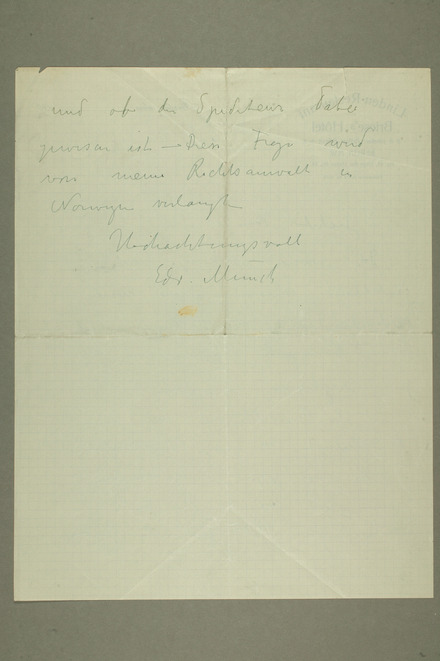 und ob der Spediteur
gewesen ist — Diese Frage wird
von meine Rechtsanwalt in
Norwegen verlangt
Hochachtungsvoll
Edv. Munch